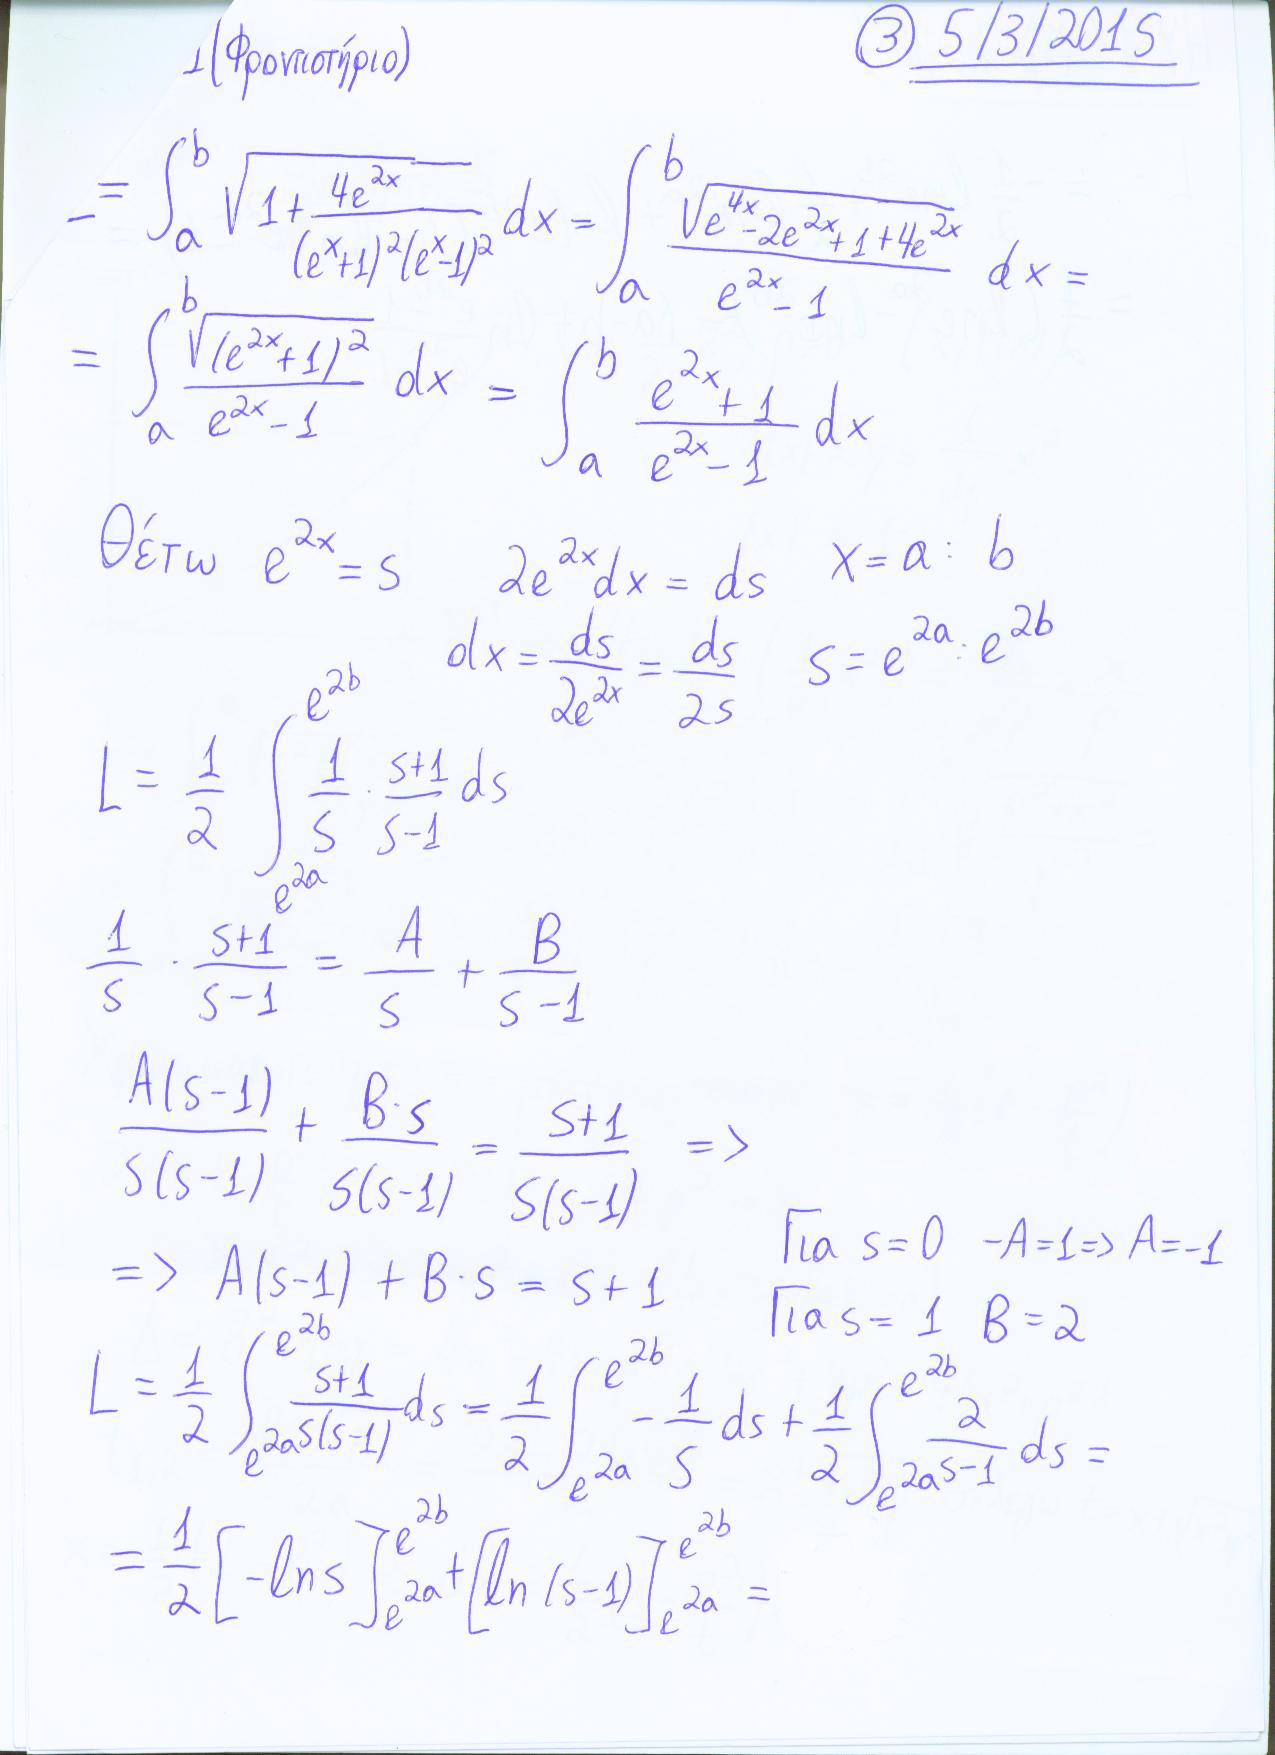 1 (Φροντιστήριο) ③ 5/3/2015
= ∫_a^b √(1 + 4e^{2x}/((e^x+1)^2(e^x-1)^2)) dx = ∫_a^b √(e^{4x}-2e^{2x}+1+4e^{2x})/(e^{2x}-1) dx =
= ∫_a^b √((e^{2x}+1)^2)/(e^{2x}-1) dx = ∫_a^b (e^{2x}+1)/(e^{2x}-1) dx
Θέτω e^{2x} = s 2e^{2x}dx = ds x = a : b
dx = ds/(2e^{2x}) = ds/(2s) s = e^{2a} : e^{2b}
L = 1/2 ∫_{e^{2a}}^{e^{2b}} 1/s · (s+1)/(s-1) ds
1/s · (s+1)/(s-1) = A/s + B/(s-1)
A(s-1)/(s(s-1)) + B·s/(s(s-1)) = (s+1)/(s(s-1)) =>
=> A(s-1) + B·s = s+1 Για s=0 -A=1 => A=-1
Για s=1 B=2
L = 1/2 ∫_{e^{2a}}^{e^{2b}} (s+1)/(s(s-1)) ds = 1/2 ∫_{e^{2a}}^{e^{2b}} -1/s ds + 1/2 ∫_{e^{2a}}^{e^{2b}} 2/(s-1) ds =
= 1/2 [-ln s]_{e^{2a}}^{e^{2b}} + [ln(s-1)]_{e^{2a}}^{e^{2b}} =